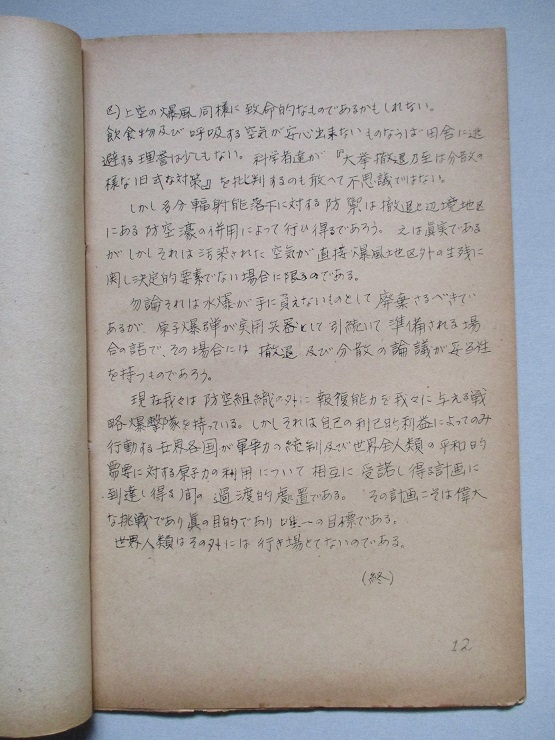 と)上空の爆風同様に致命的なものであるかもしれない。
飲食物及び呼吸する空気が安心出来ないものならば田舎に逃
避する理由は少しもない。科学者達が『大挙撤退乃至は分散の
様な旧式な対策』を批判するのも敢へて不思議ではない。
しかし多分輻射能落下に対する防禦は撤退と辺境地区
にある防空濠の併用によって行ひ得るであろう。之は真実である
がしかしそれは汚染された空気が直接爆風地区外の生残に
関し決定的要素でない場合に限るのである。
勿論それは水爆が手に負えないものとして廃棄さるべきで
あるが、原子爆弾が実用兵器として引続いて準備される場
合の話で、その場合には撤退及び分散の論議が妥当性
を持つものであろう。
現在我々は防空組織の外に報復能力を我々に与える戦
略爆撃隊を持っている。しかしそれは自己の利己的利益によってのみ
行動する世界各国が軍事力の統制及び世界全人類の平和的
需要に対する原子力の利用について相互に受諾し得る計画に
到達し得る間の過渡的処置である。その計画こそは偉大
な挑戦であり真の目的であり唯一の目標である。
世界人類はその外には行き場とてないのである。
(終)
12